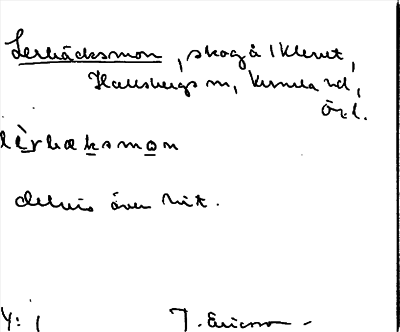 Lerbäcksmon, skog å 1 Klevet,
Hallsbergs sn, Kumla hd,
Ör.l.
lèrbæksmon
delvis över hit.
4:1 J. Ericsson –